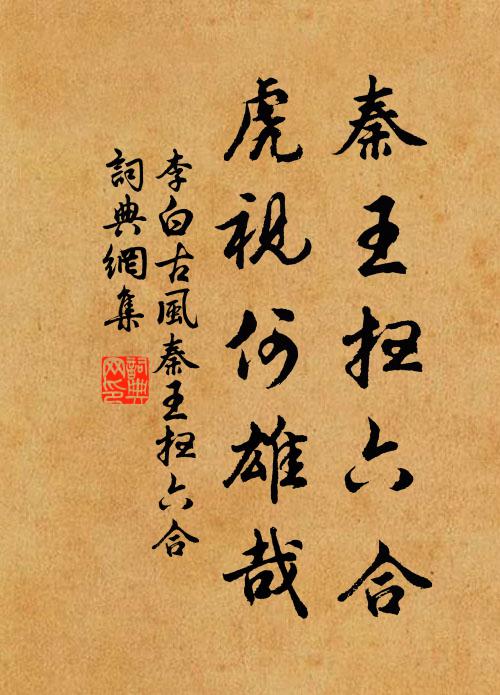 秦王扫六合
虎視何雄哉
李白古風秦王扫六合
詞典網集
詞典
网印